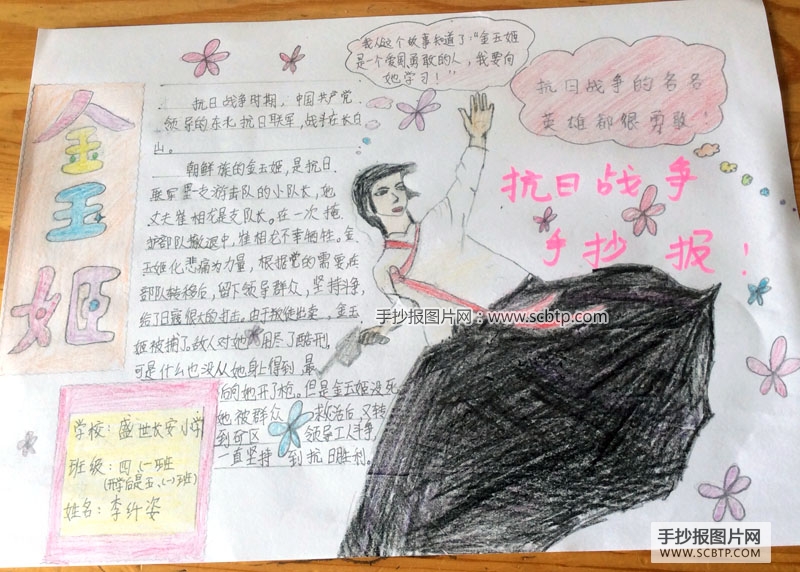 金玉姬
我从这个故事知道了："金玉姬
是一个爱国勇敢的人，我要向
她学习！"
抗日战争的名名
英雄都很勇敢！
抗日战争
手抄报！
抗日战争时期，中国共产党
领导的东北抗日联军，战斗在长白
山。
朝鲜族的金玉姬，是抗日
联军某支游击队的小队长，她
丈夫崔相龙是支队长。在一次掩
护部队撤退中，崔相龙不幸牺牲。金
玉姬化悲痛为力量，根据党的需要，在
部队转移后，留下领导群众，坚持斗争，
给了日寇很大的打击。由于叛徒出卖，金玉
姬被捕了。敌人对她用尽了酷刑，
可是什么也没从她身上得到，最
后向她开了枪。但是金玉姬没死
她被群众救活后，又转
到矿区领导工人斗争
一直坚持到抗日胜利。
学校：盛世长安小学
班级：四、(一)班
(开学后是五、(一)班)
姓名：李纡姿
手抄报图片网：www.scbtp.com
手抄报图片网
WWW.SCBTP.COM